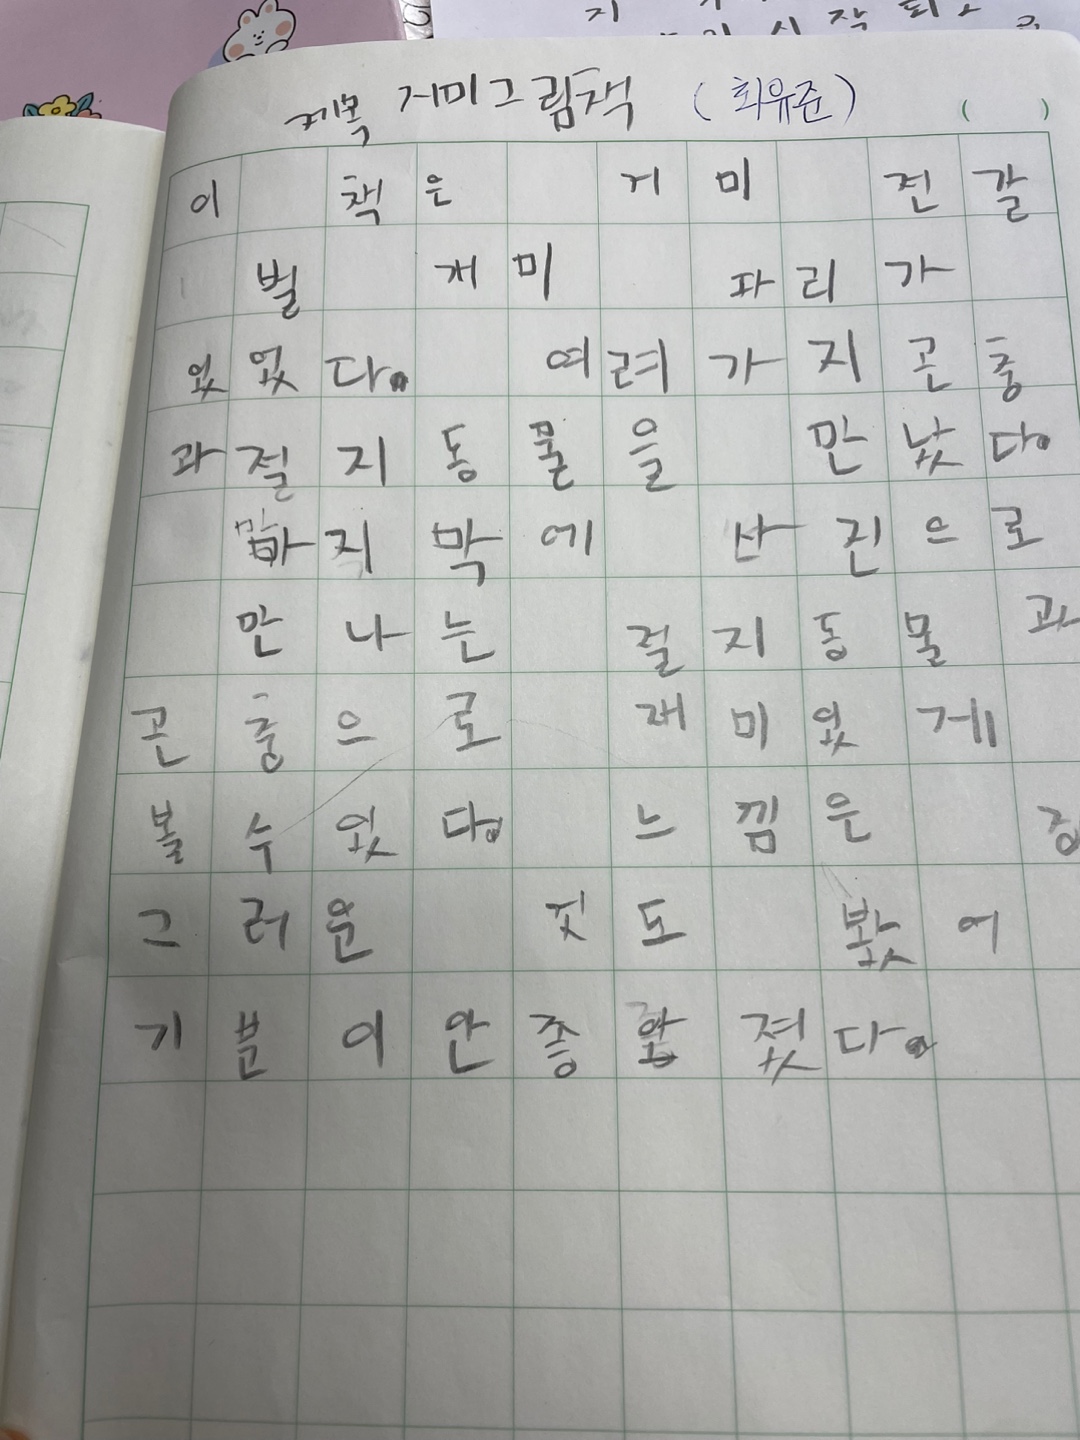 제목 거미그림책 (최유준) ( )
이 책은 거미 전갈
벌 개미 파리가
있었다. 여려가지곤충
과절지동물을 만났다.
마지막에 사진으로
만나는 절지동물과
곤충으로 재미있게
볼수있다. 느낌은 징
그러운 것도 봤어
기분이안좋와졌다.